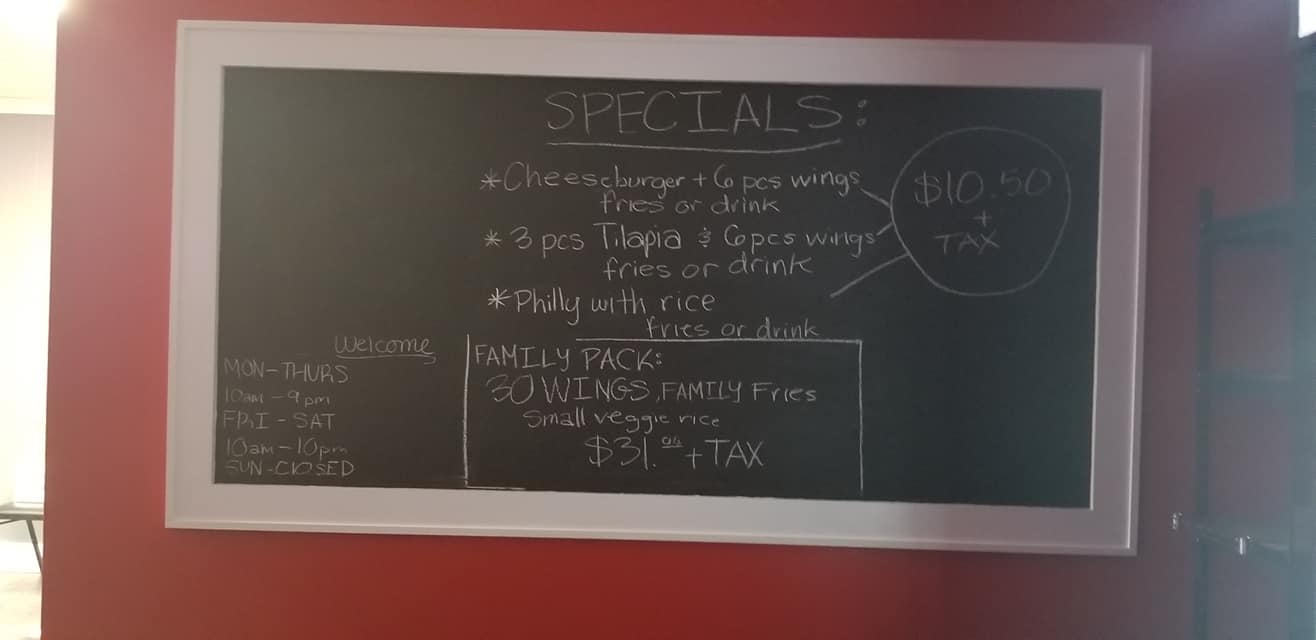 SPECIALS:
*Cheeseburger + 6 pcs wings
fries or drink
* 3 pcs Tilapia & 6pcs wings
fries or drink
*Philly with rice
fries or drink
$10.50
+
TAX
FAMILY PACK:
30 WINGS, FAMILY Fries
Small veggie rice
$31. + TAX
Welcome
MON-THURS
10am - 9pm
FRI - SAT
10am-10pm
SUN-CLOSED